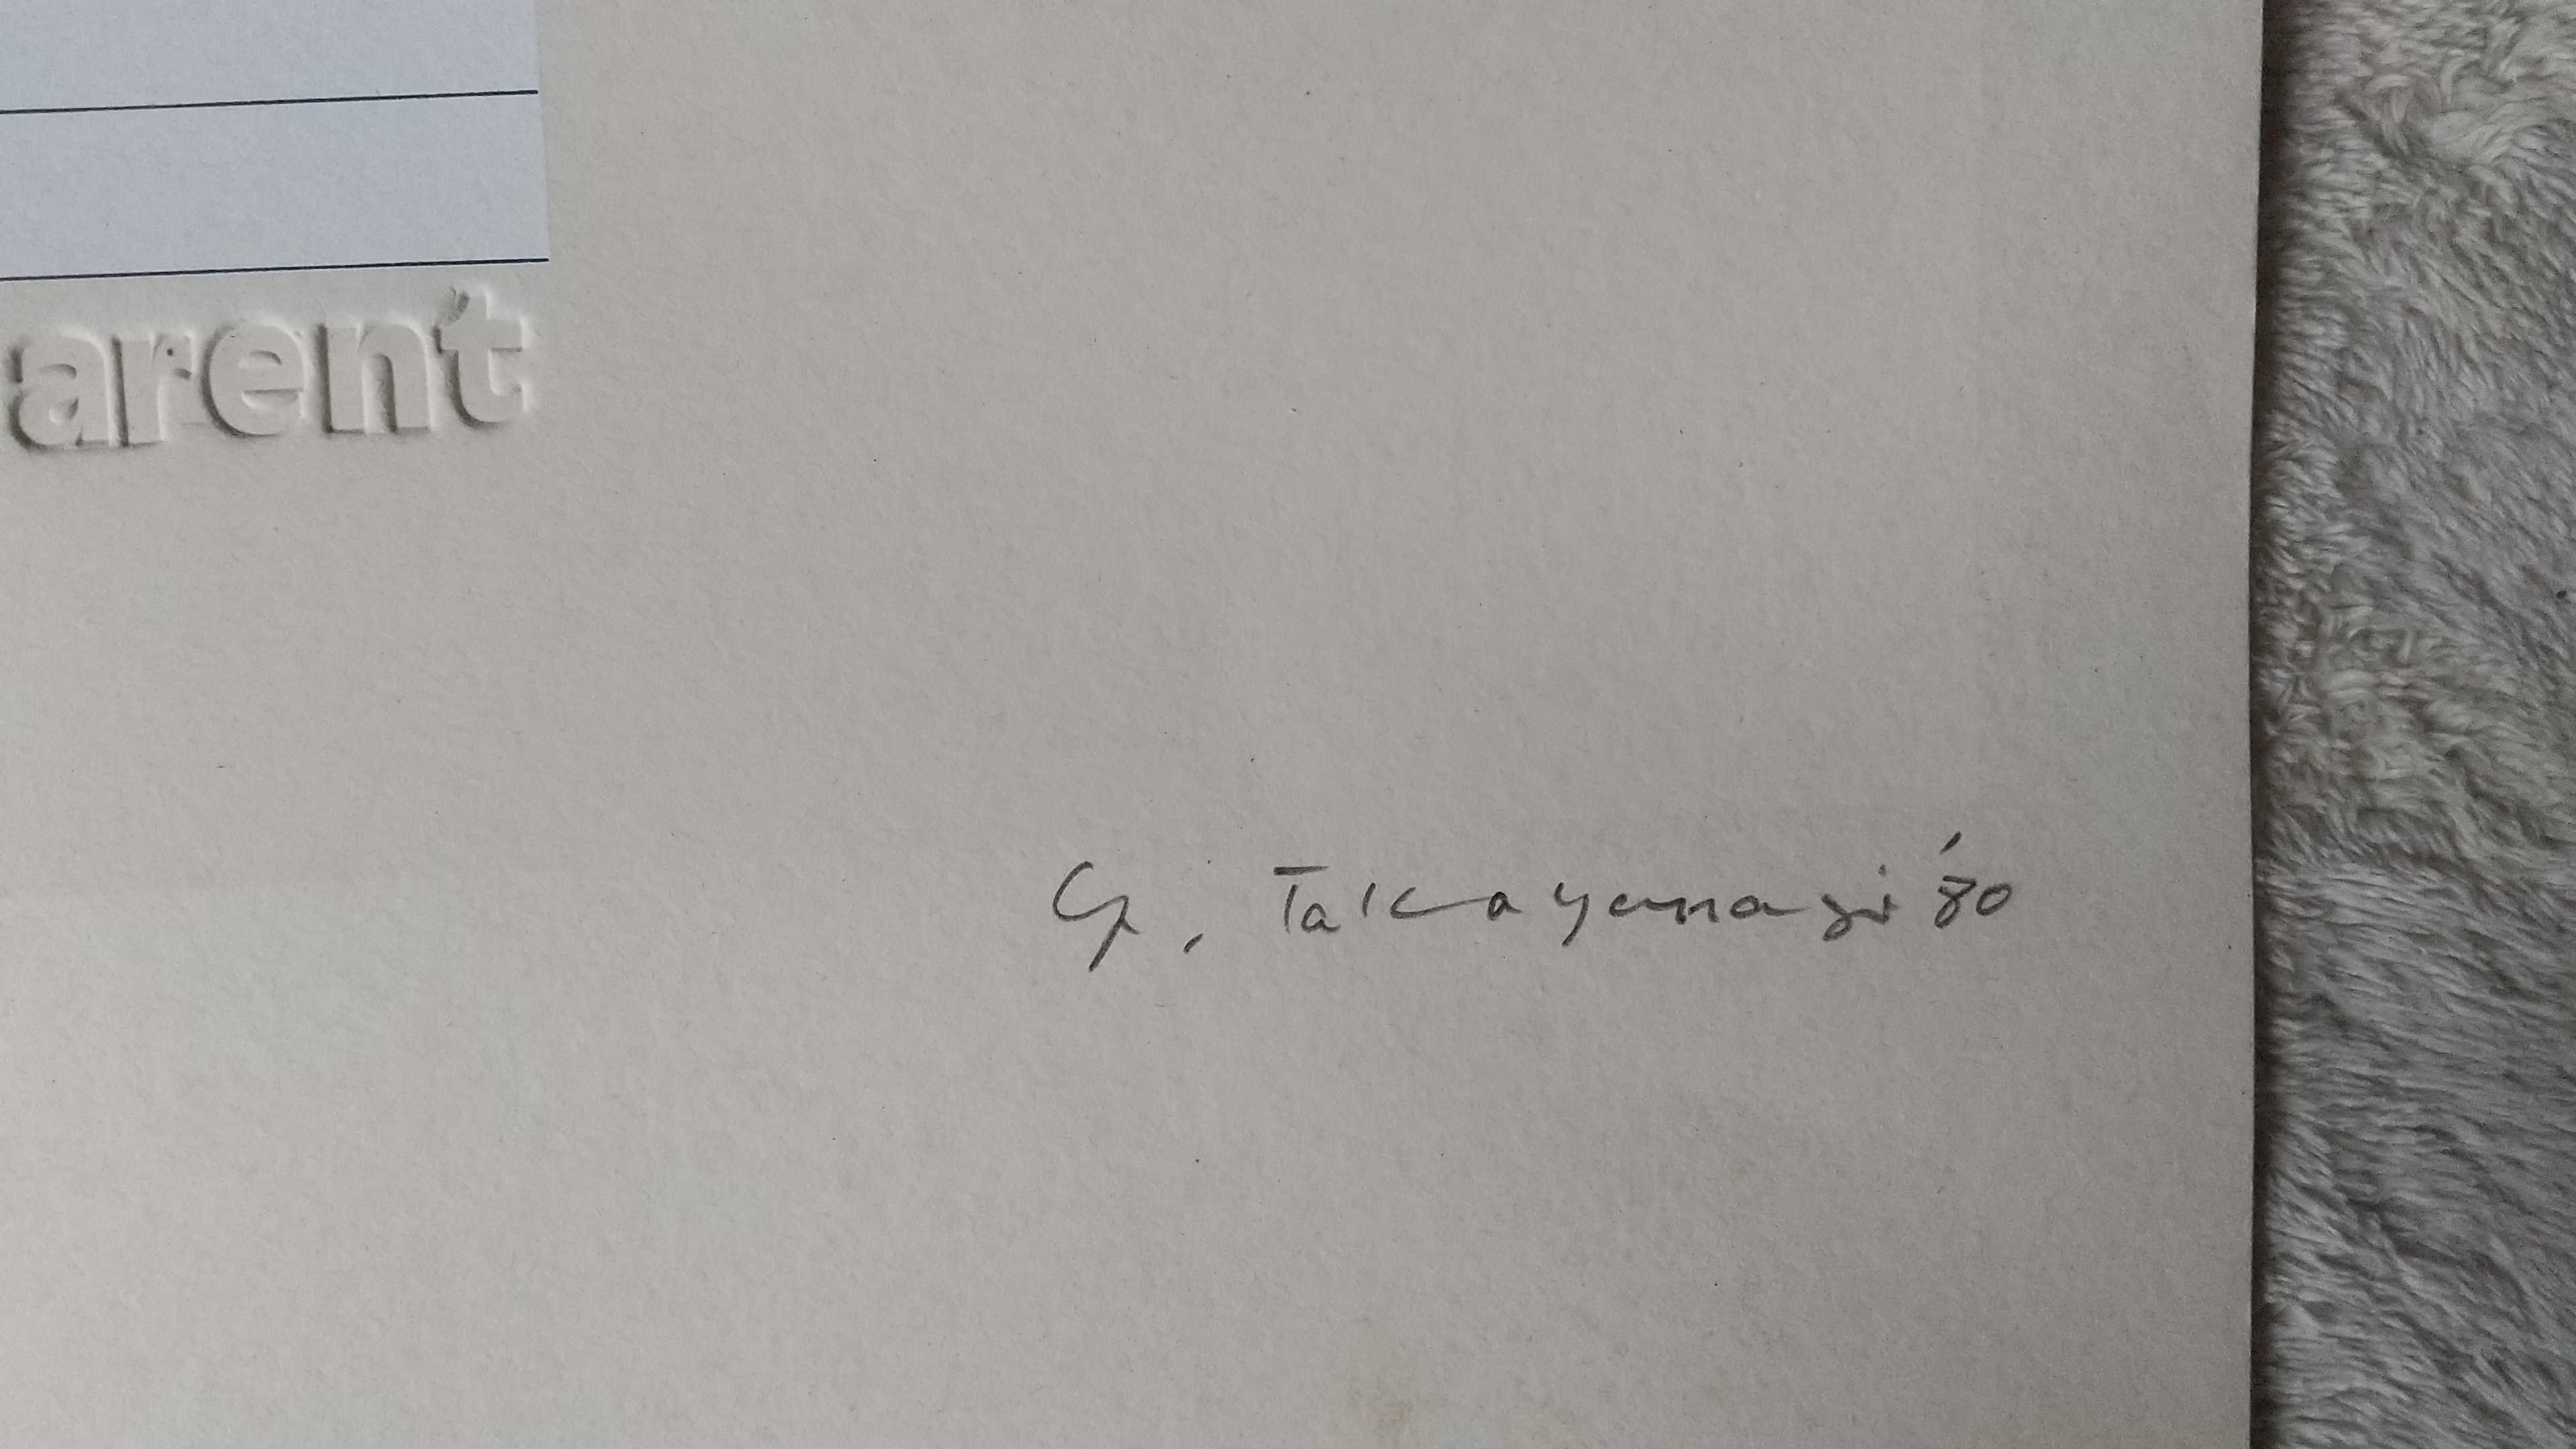 arent
G. Takayanagi '80